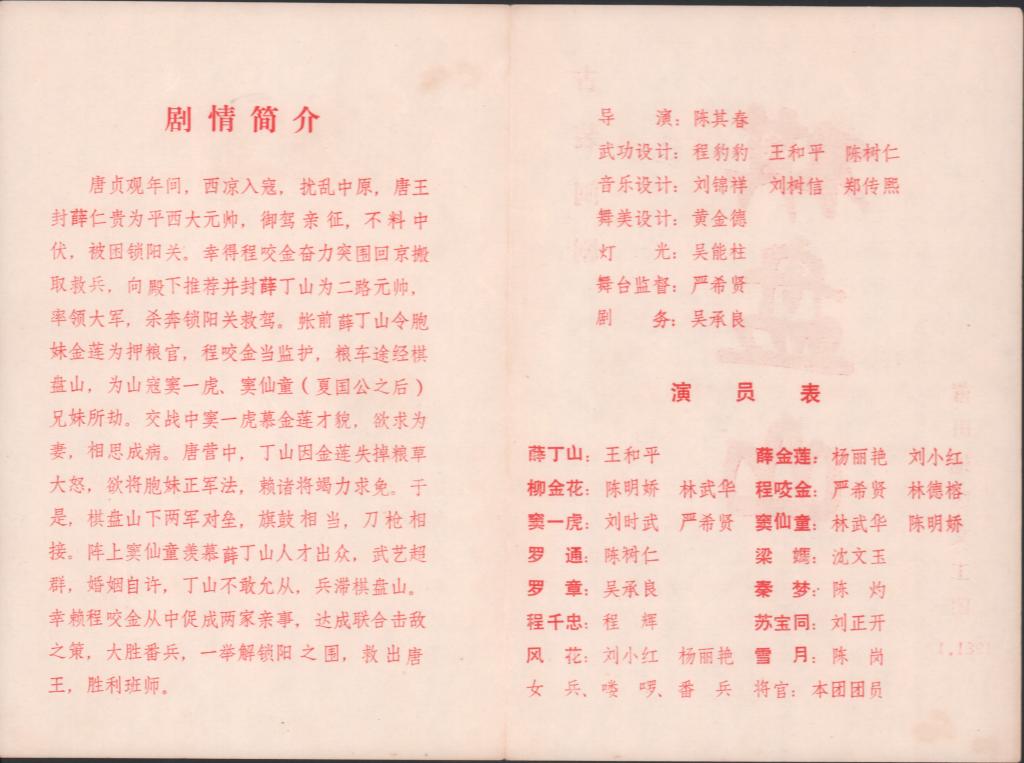 剧情简介
唐贞观年间，西凉入寇，扰乱中原，唐王
封薛仁贵为平西大元帅，御驾亲征，不料中
伏，被困锁阳关。幸得程咬金奋力突围回京搬
取救兵，向殿下推荐并封薛丁山为二路元帅，
率领大军，杀奔锁阳关救驾。帐前薛丁山令胞
妹金莲为押粮官，程咬金当监护，粮车途经棋
盘山，为山寇窦一虎、窦仙童（夏国公之后）
兄妹所劫。交战中窦一虎慕金莲才貌，欲求为
妻，相思成病。唐营中，丁山因金莲失掉粮草
大怒，欲将胞妹正军法，赖诸将竭力求免。于
是，棋盘山下两军对垒，旗鼓相当，刀枪相
接。阵上窦仙童羡慕薛丁山人才出众，武艺超
群，婚姻自许，丁山不敢允从，兵滞棋盘山。
幸赖程咬金从中促成两家亲事，达成联合击敌
之策，大胜番兵，一举解锁阳之围，救出唐
王，胜利班师。
导　演：陈其春
武功设计：程豹豹　王和平　陈树仁
音乐设计：刘锦祥　刘树信　郑传熙
舞美设计：黄金德
灯　光：吴能柱
舞台监督：严希贤
剧　务：吴承良
演　员　表
薛丁山：王和平　薛金莲：杨丽艳　刘小红
柳金花：陈明娇　林武华　程咬金：严希贤　林德榕
窦一虎：刘时武　严希贤　窦仙童：林武华　陈明娇
罗　通：陈树仁　梁　嫣：沈文玉
罗　章：吴承良　秦　梦：陈　灼
程千忠：程　辉　苏宝同：刘正开
风　花：刘小红　杨丽艳　雪　月：陈　岗
女　兵、喽　啰、番　兵　将官：本团团员